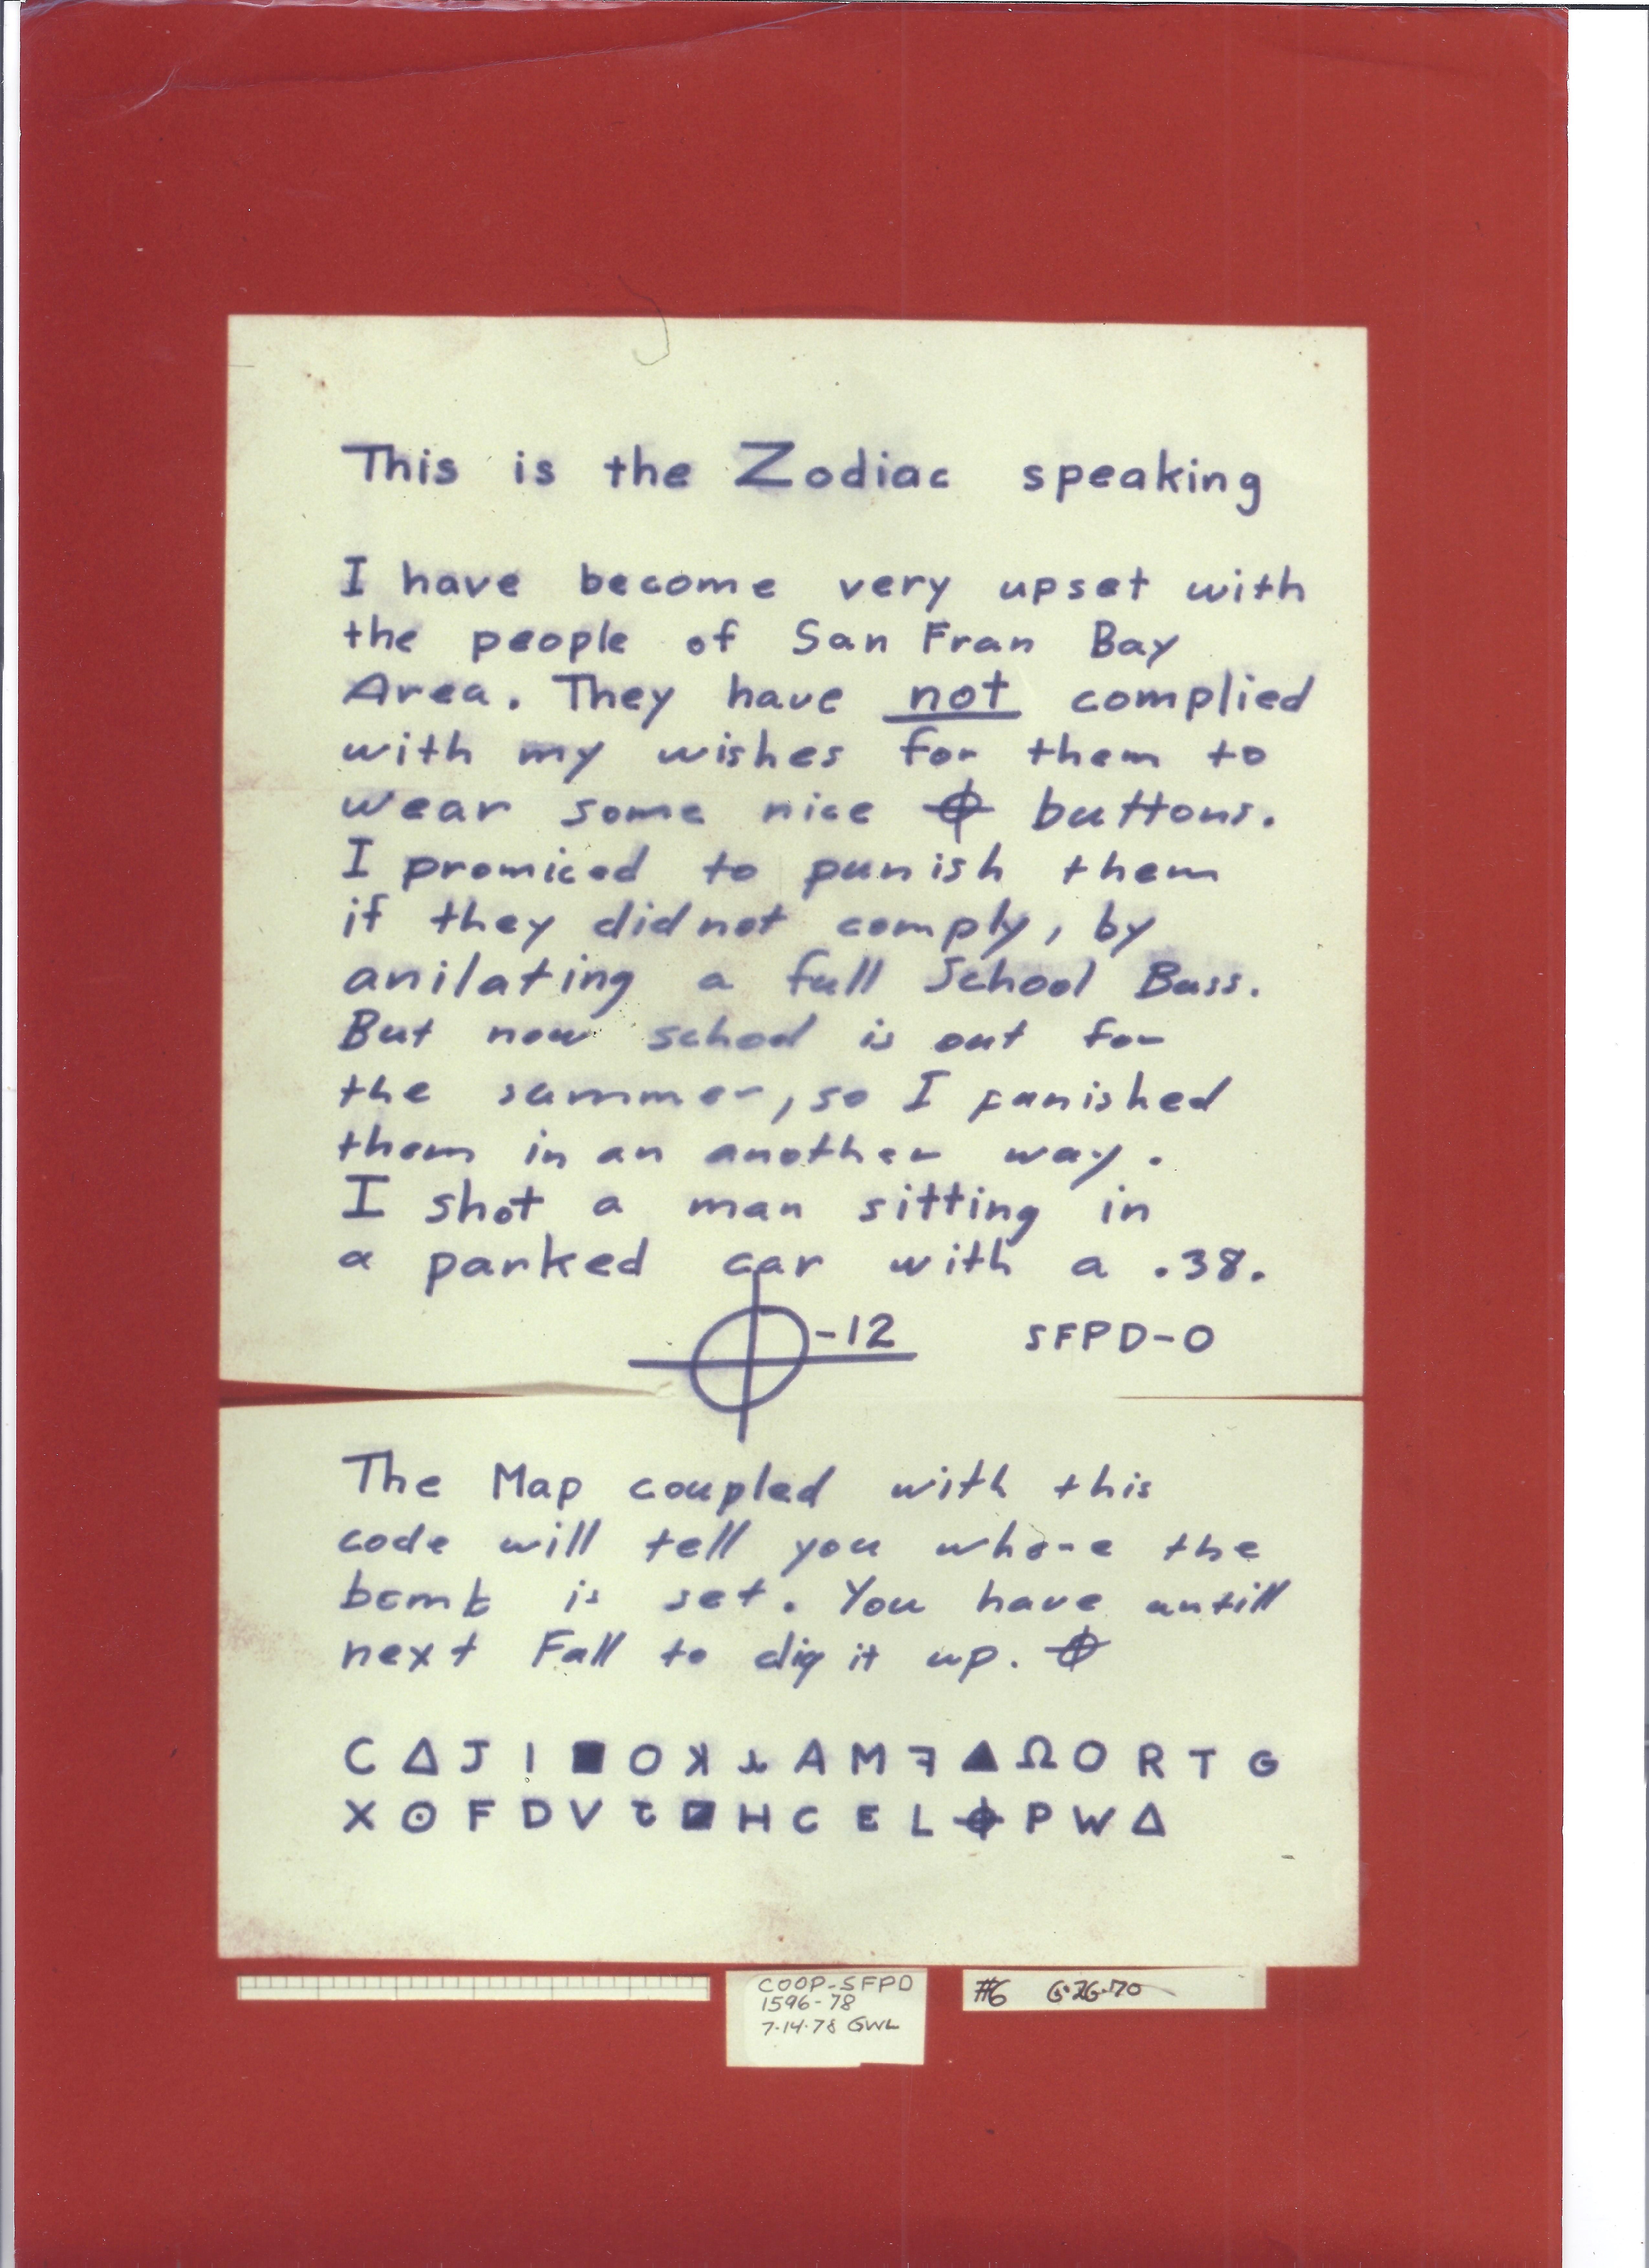 This is the Zodiac speaking
I have become very upset with
the people of San Fran Bay
Area. They have not complied
with my wishes for them to
wear some nice ⌖ buttons.
I promiced to punish them
if they did not comply, by
anilating a full School Buss.
But now school is out for
the summer, so I punished
them in an another way.
I shot a man sitting in
a parked car with a .38.
⌖-12 SFPD-0
The Map coupled with this
code will tell you where the
bomb is set. You have untill
next Fall to dig it up. ⌖
C Δ J I ■ O ꓘ ⅄ A M ꟻ ▲ Ω O R T G
X ⊙ F D V Ʇ ◪ H C E L ⌖ P W Δ
COOP-SFPD
1596-78
7-14-78 GWL
#6 6-26-70